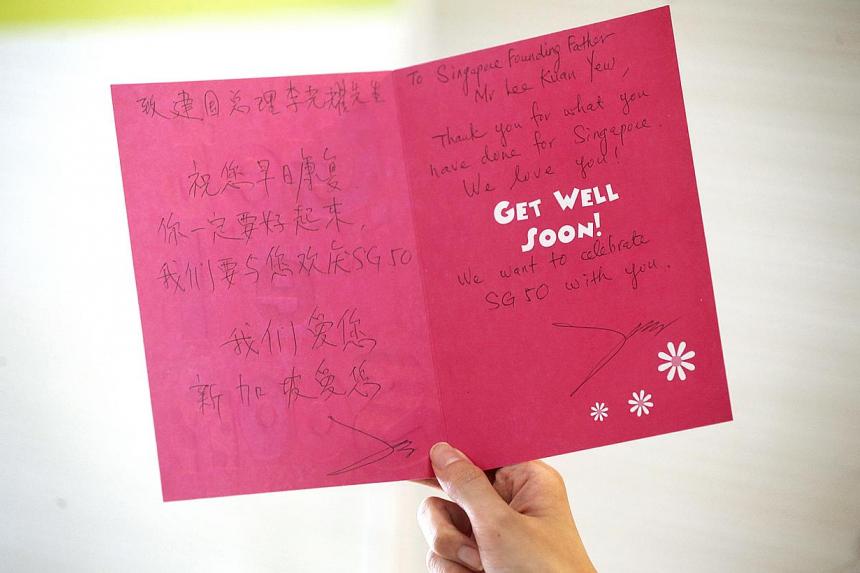 致建国总理李光耀先生
祝您早日康复
你一定要好起来,
我们要与您欢庆SG50
我们爱您
新加坡爱您
To Singapore Founding Father
Mr Lee Kuan Yew,
Thank you for what you
have done for Singapore.
We love you!
GET WELL
SOON!
We want to celebrate
SG50 with you.